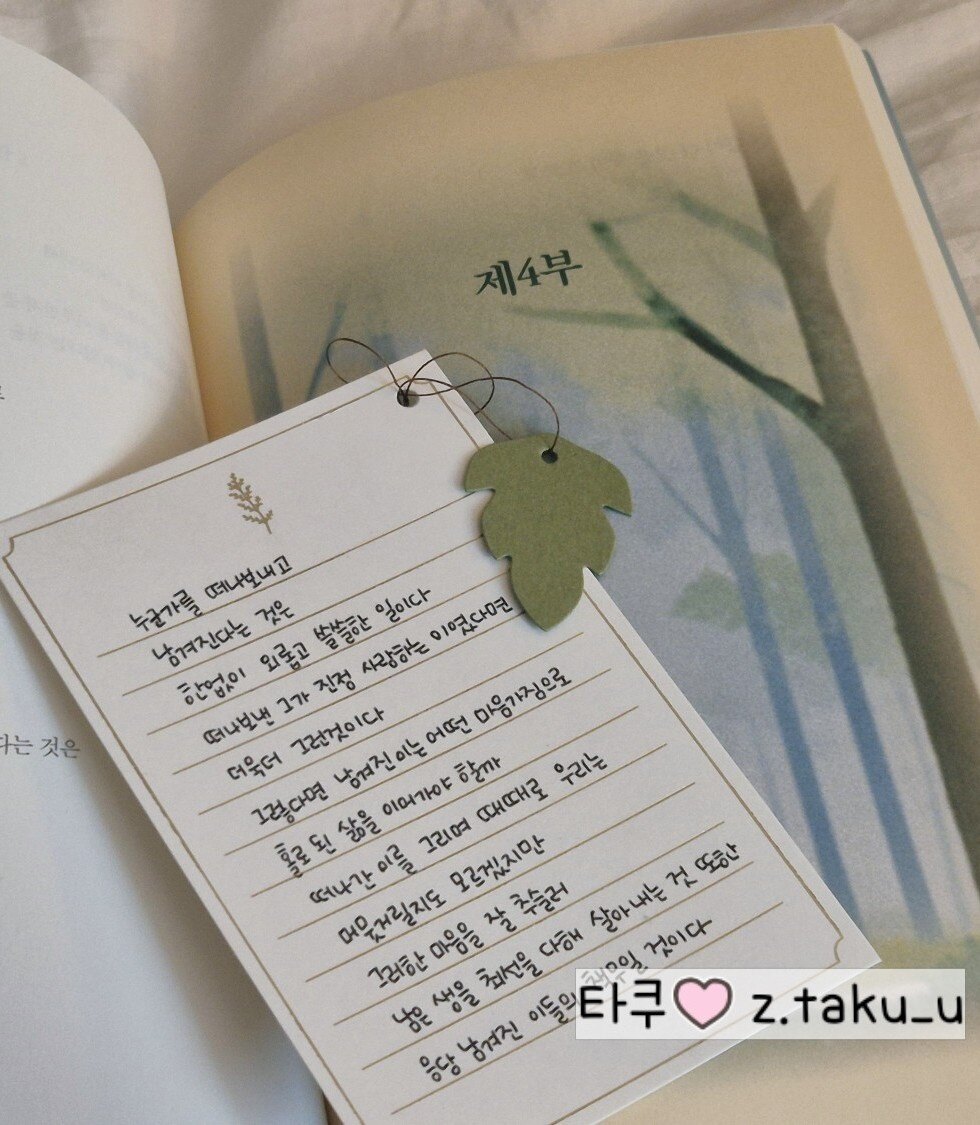 제4부
누군가를 떠나보내고
남겨진다는 것은
한없이 외롭고 쓸쓸한 일이다
떠나보낸 그가 진정 사랑하는 이였다면
더욱더 그런것이다
그렇다면 남겨진 이는 어떤 마음가짐으로
홀로 된 삶을 이어가야 할까
떠나간 이를 그리며 때때로 우리는
머뭇거릴지도 모르겠지만
그러한 마음을 잘 추슬러
남은 생을 최선을 다해 살아내는 것 또한
응당 남겨진 이들의 책무일 것이다
다는 것은
타쿠🩷 z.taku_u